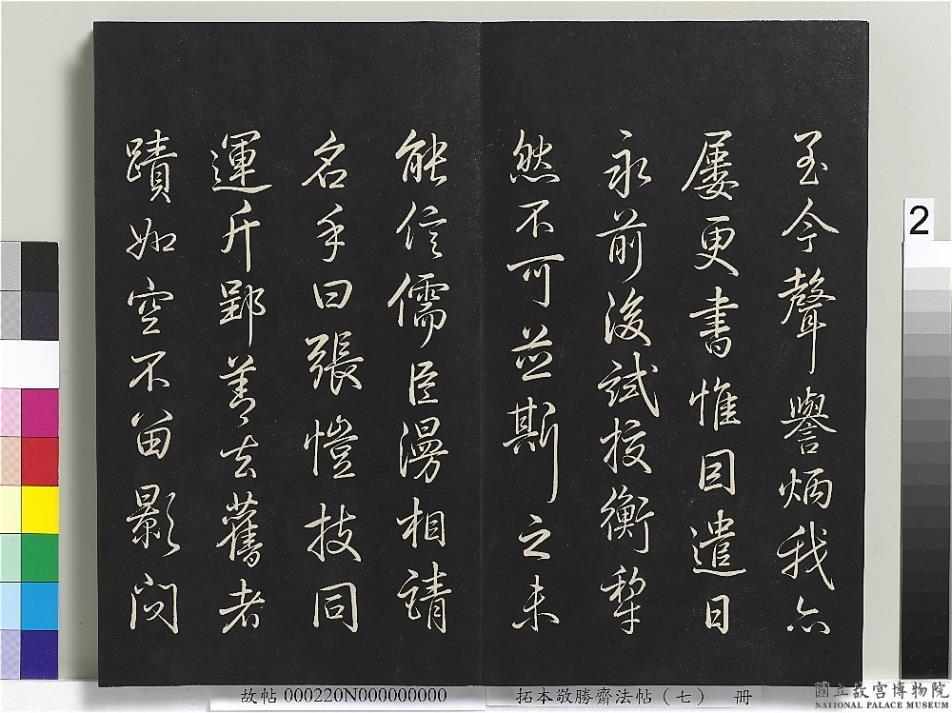 至今聲譽炳我亦
屢更書惟因遣日
永前後試挍衡犂
然不可並斯之未
能信儒臣漫相請
名手曰張愷技同
運斤郢善去舊者
蹟如空不留影問
2
故帖 000220N000000000
拓本敬勝齋法帖(七) 冊
國立故宮博物院
NATIONAL PALACE MUSEUM